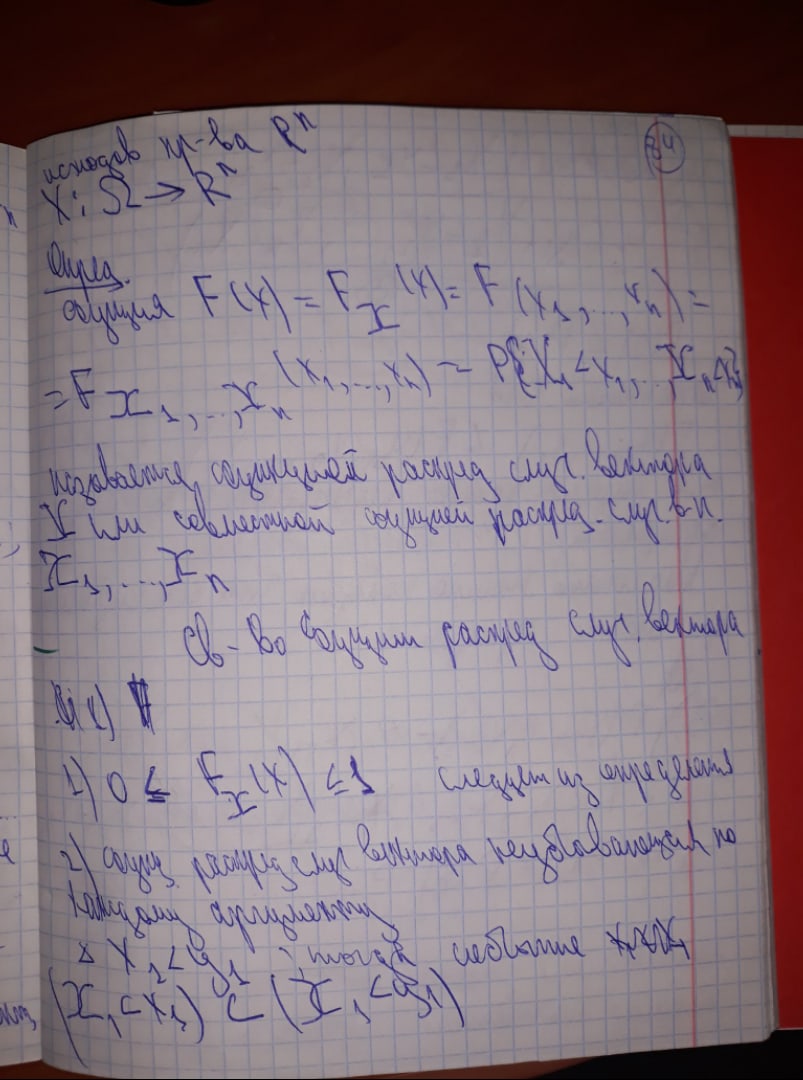 исходов пр-ва R^n
X: Ω → R^n
Опред.
функция F(x) = F_X(x) = F(x_1, ..., x_n) =
= F_{X_1, ..., X_n}(x_1, ..., x_n) = P{X_1 < x_1, ..., X_n < x_n}
называется функцией распред случ. вектора
X или совместной функцией распред. случ. в-н.
X_1, ..., X_n
Св-во функции распред случ. вектора
1) 0 ≤ F_X(x) ≤ 1 следует из определения
2) функ. распред случ вектора неубывающая по
каждому аргументу
Δ x_1 < y_1 ; тогда событие
(X_1 < x_1) ⊂ (X_1 < y_1)